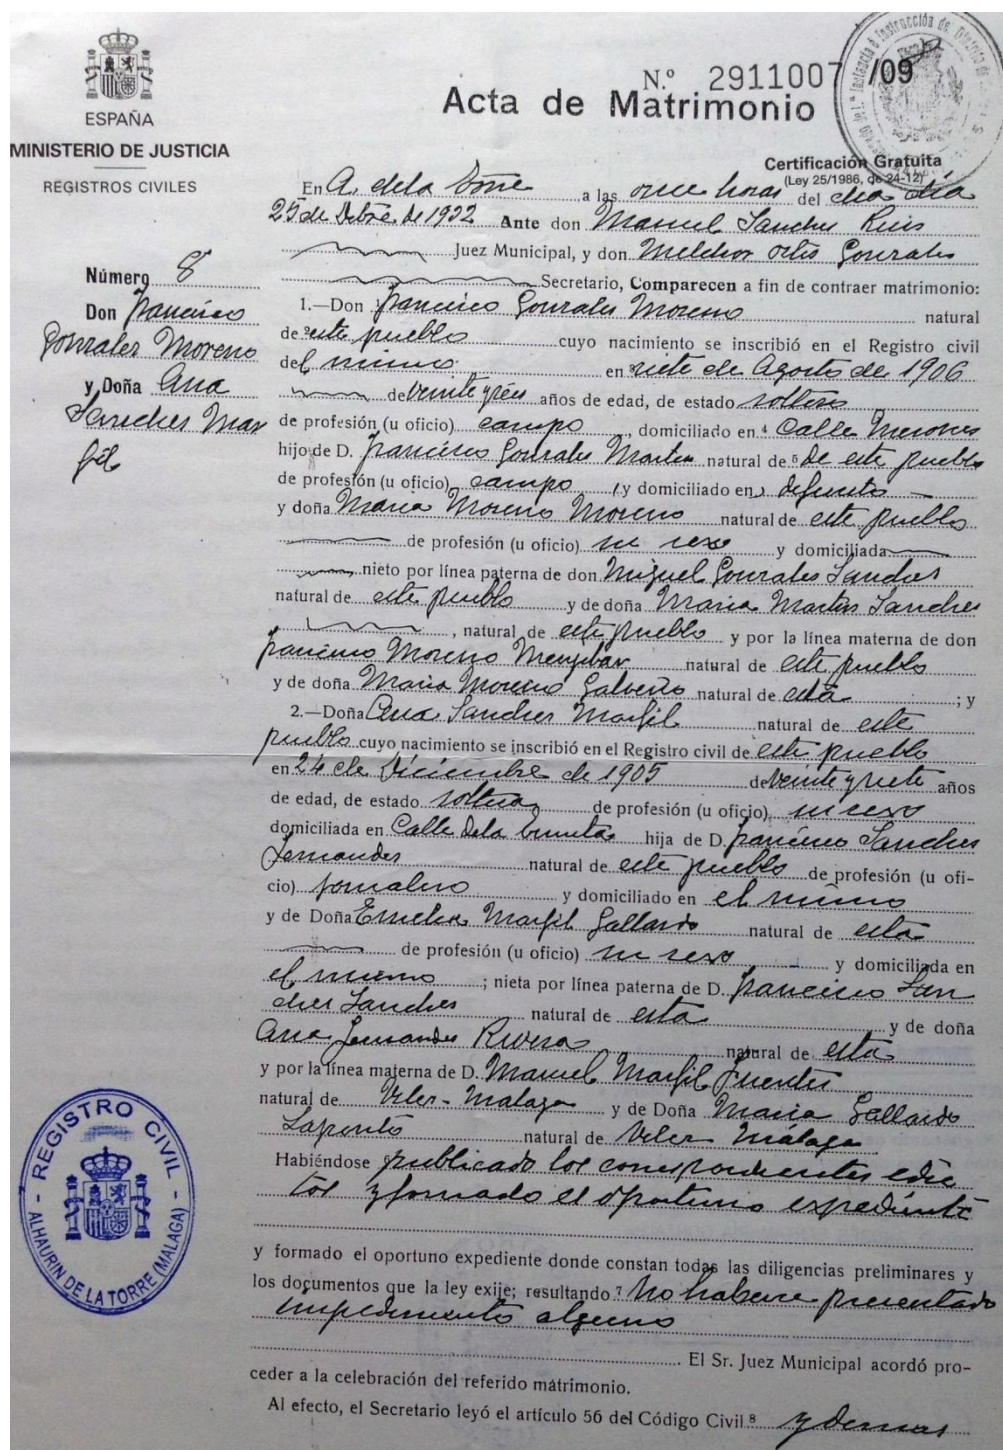 ESPAÑA
MINISTERIO DE JUSTICIA
REGISTROS CIVILES
Nº 2911007 /09
Acta de Matrimonio
Certificación Gratuita
(Ley 25/1986, de 24-12)
En A. de la Torre a las once horas del día
25 de Dbre de 1932 Ante don Manuel Sanches Ruis
Juez Municipal, y don Melchor Ortis Gonzales
Secretario, Comparecen a fin de contraer matrimonio:
Número 8
Don Francisco
Gonzales Moreno
y Doña Ana
Sanches Mar
fil
1.—Don Francisco Gonzales Moreno natural
de este pueblo cuyo nacimiento se inscribió en el Registro civil
del mismo en siete de Agosto de 1906
de veinte y seis años de edad, de estado soltero
de profesión (u oficio) campo, domiciliado en 4 Calle Mesones
hijo de D. Francisco Gonzales Martin natural de 5 De este pueblo
de profesión (u oficio) campo, y domiciliado en difunto
y doña Maria Moreno Moreno natural de este pueblo
de profesión (u oficio) su sexo y domiciliada
nieto por línea paterna de don Miguel Gonzales Sanches
natural de este pueblo y de doña Maria Martin Sanches
, natural de este pueblo y por la línea materna de don
Francisco Moreno Menjibar natural de este pueblo
y de doña Maria Moreno natural de esta ; y
2.—Doña Ana Sanches Marfil natural de este
pueblo cuyo nacimiento se inscribió en el Registro civil de este pueblo
en 24 de Diciembre de 1905 de veinte y siete años
de edad, de estado soltera de profesión (u oficio) su sexo
domiciliada en Calle de la hija de D. Francisco Sanches
Fernandes natural de este pueblo de profesión (u ofi-
cio) jornalero y domiciliado en el mismo
y de Doña Emelia Marfil Gallardo natural de esta
de profesión (u oficio) su sexo y domiciliada en
el mismo ; nieta por línea paterna de D. Francisco San
ches Sanches natural de esta y de doña
Ana Fernandes Rivera natural de esta
y por la línea materna de D. Manuel Marfil Fuentes
natural de Veles-Malaga y de Doña Maria Gallardo
natural de Veles Málaga
Habiéndose publicado los correspondientes edic
tos y formado el oportuno expediente
y formado el oportuno expediente donde constan todas las diligencias preliminares y
los documentos que la ley exije; resultando 7 No haberse presentado
impedimento alguno
El Sr. Juez Municipal acordó pro-
ceder a la celebración del referido matrimonio.
Al efecto, el Secretario leyó el artículo 56 del Código Civil 8 y demas
REGISTRO CIVIL
- ALHAURIN DE LA TORRE (MALAGA) -